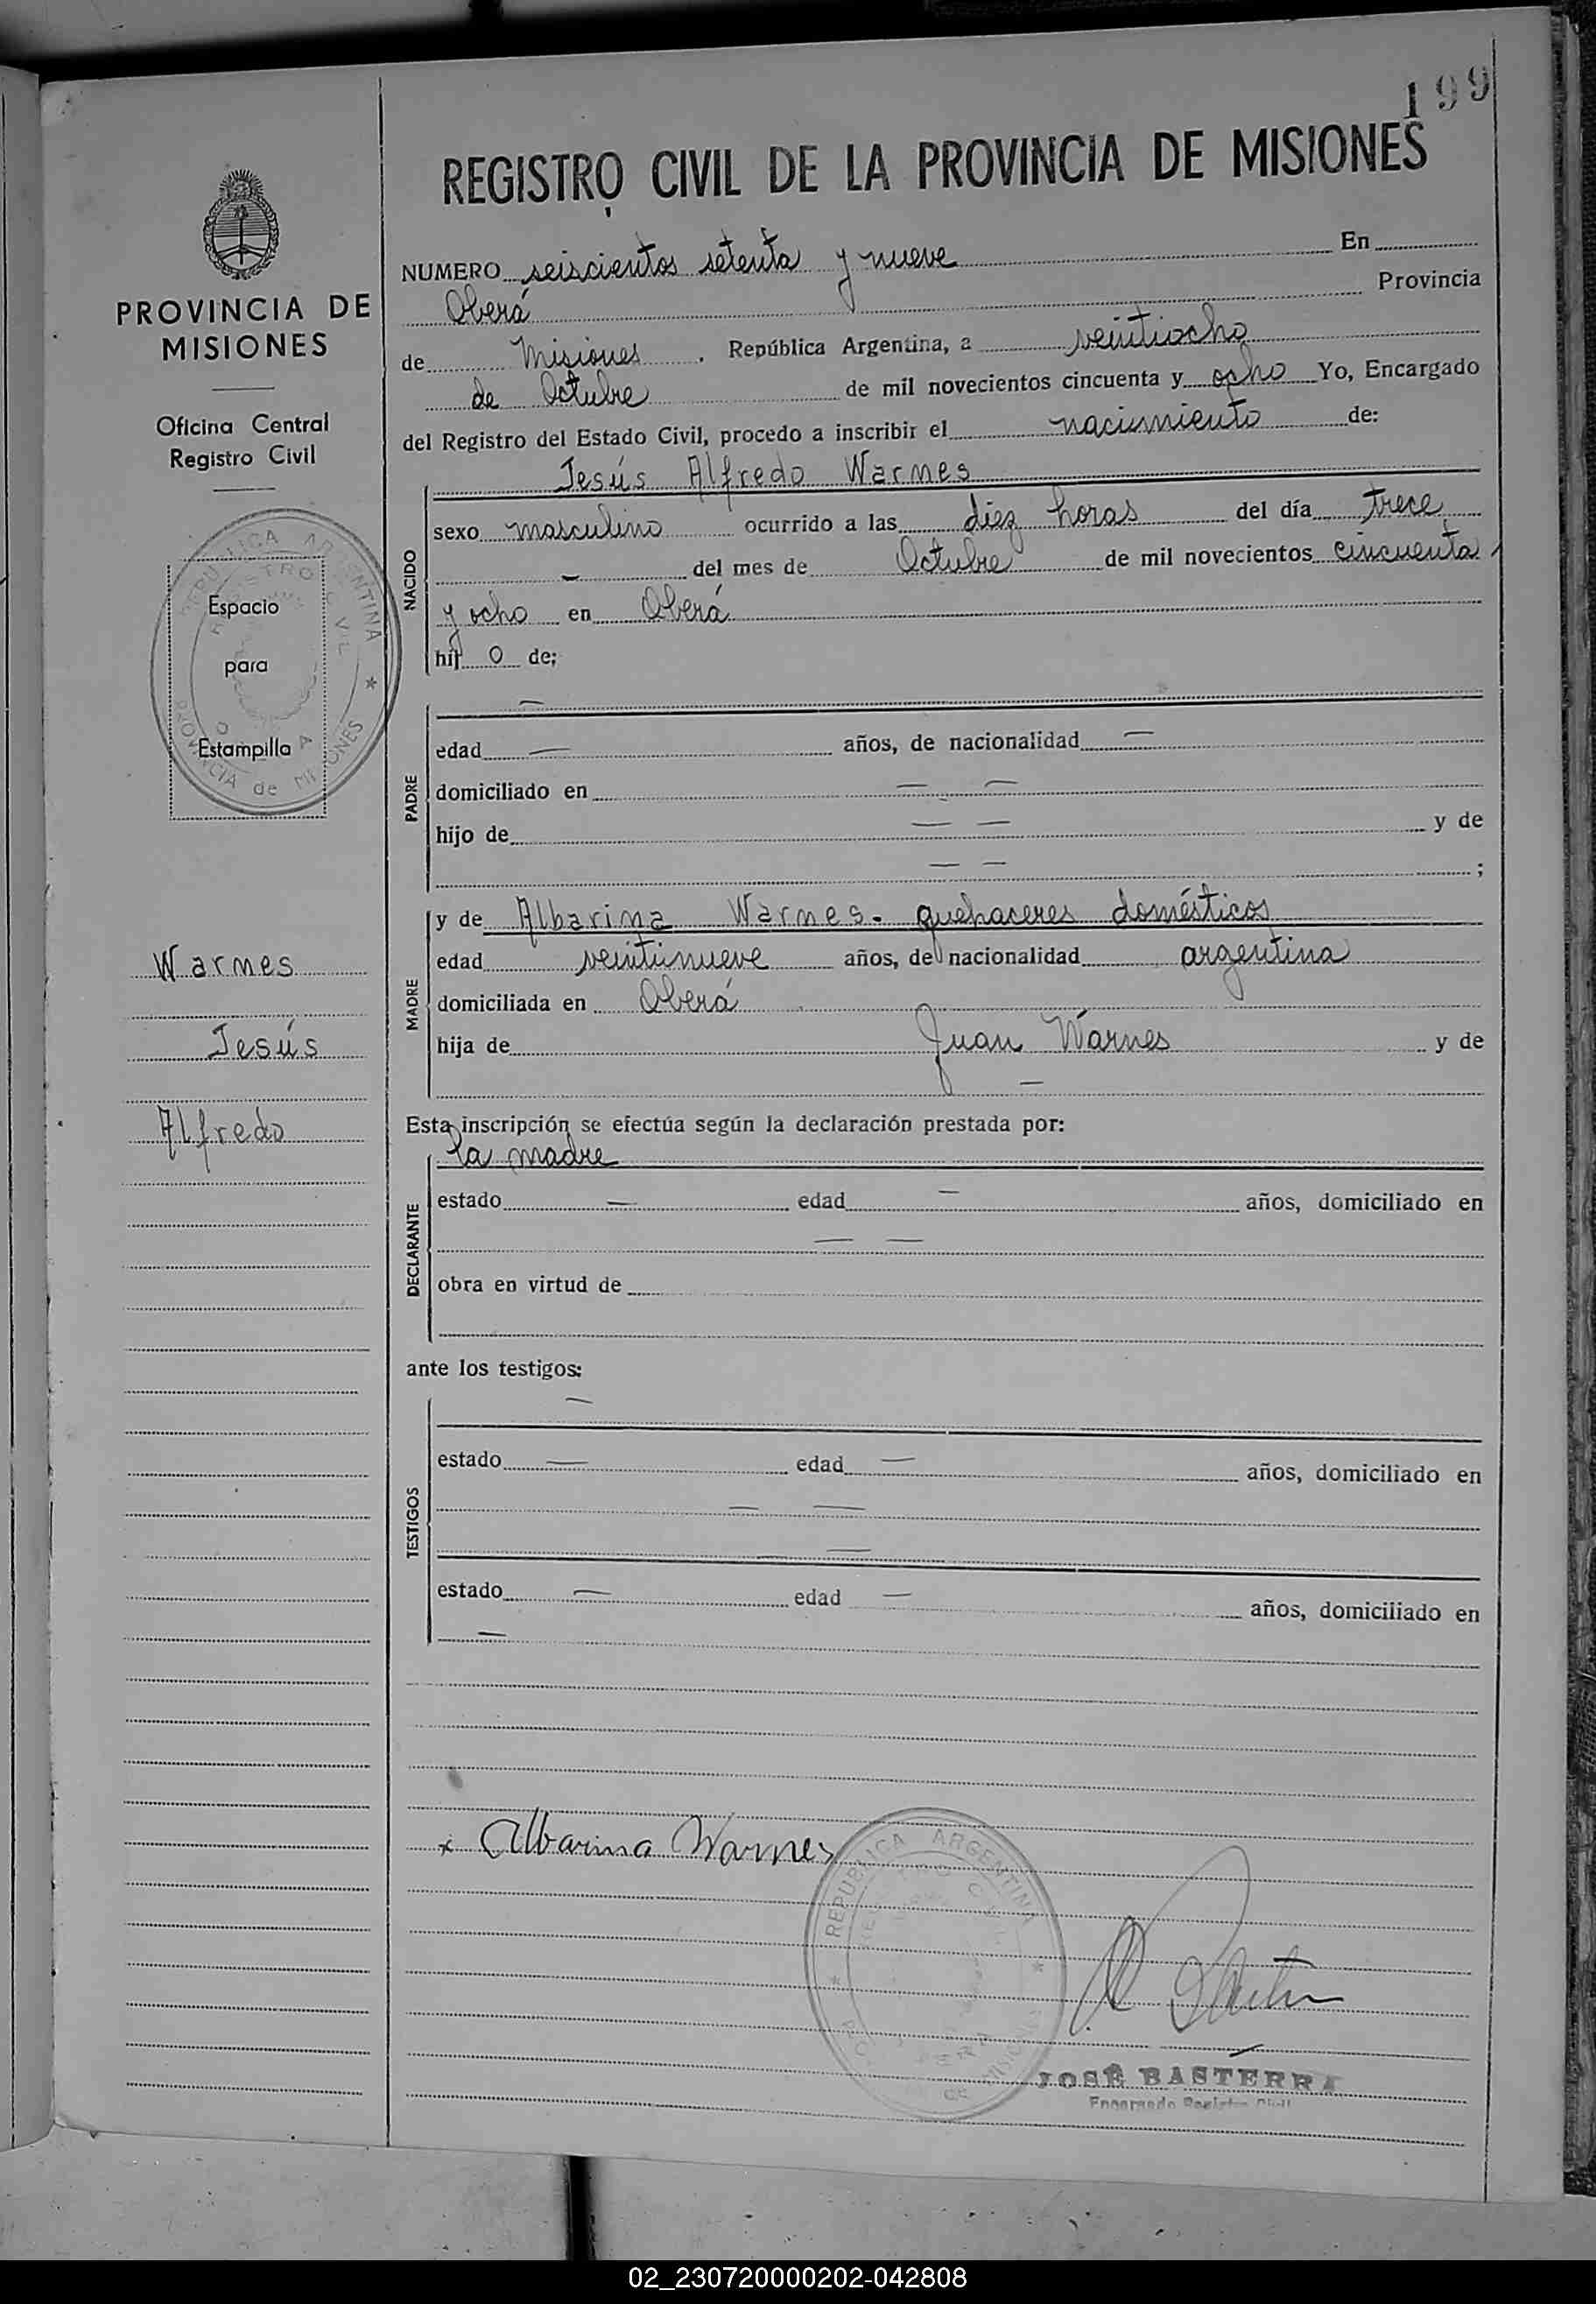 199
REGISTRO CIVIL DE LA PROVINCIA DE MISIONES
NUMERO seiscientos setenta y nueve En
Oberá Provincia
de Misiones, República Argentina, a veintiocho
de Octubre de mil novecientos cincuenta y ocho Yo, Encargado
del Registro del Estado Civil, procedo a inscribir el nacimiento de:
NACIDO
Jesús Alfredo Warnes
sexo masculino ocurrido a las diez horas del día trece
— del mes de Octubre de mil novecientos cincuenta
y ocho en Oberá
hij o de;
PADRE
—
edad — años, de nacionalidad —
domiciliado en — —
hijo de — — y de
— — ;
MADRE
y de Albarina Warnes - quehaceres domésticos
edad veintinueve años, de nacionalidad argentina
domiciliada en Oberá
hija de Juan Warnes y de
—
Esta inscripción se efectúa según la declaración prestada por:
DECLARANTE
la madre
estado — edad — años, domiciliado en
— —
obra en virtud de
ante los testigos:
TESTIGOS
—
estado — edad — años, domiciliado en
— —
—
estado — edad — años, domiciliado en
—
x Albarina Warnes
REPUBLICA ARGENTINA
JOSÉ BASTERRA
Encargado Registro Civil
PROVINCIA DE
MISIONES
Oficina Central
Registro Civil
REPUBLICA ARGENTINA
REGISTRO CIVIL
PROVINCIA de MISIONES
Espacio
para
Estampilla
Warnes
Jesús
Alfredo
02_230720000202-042808